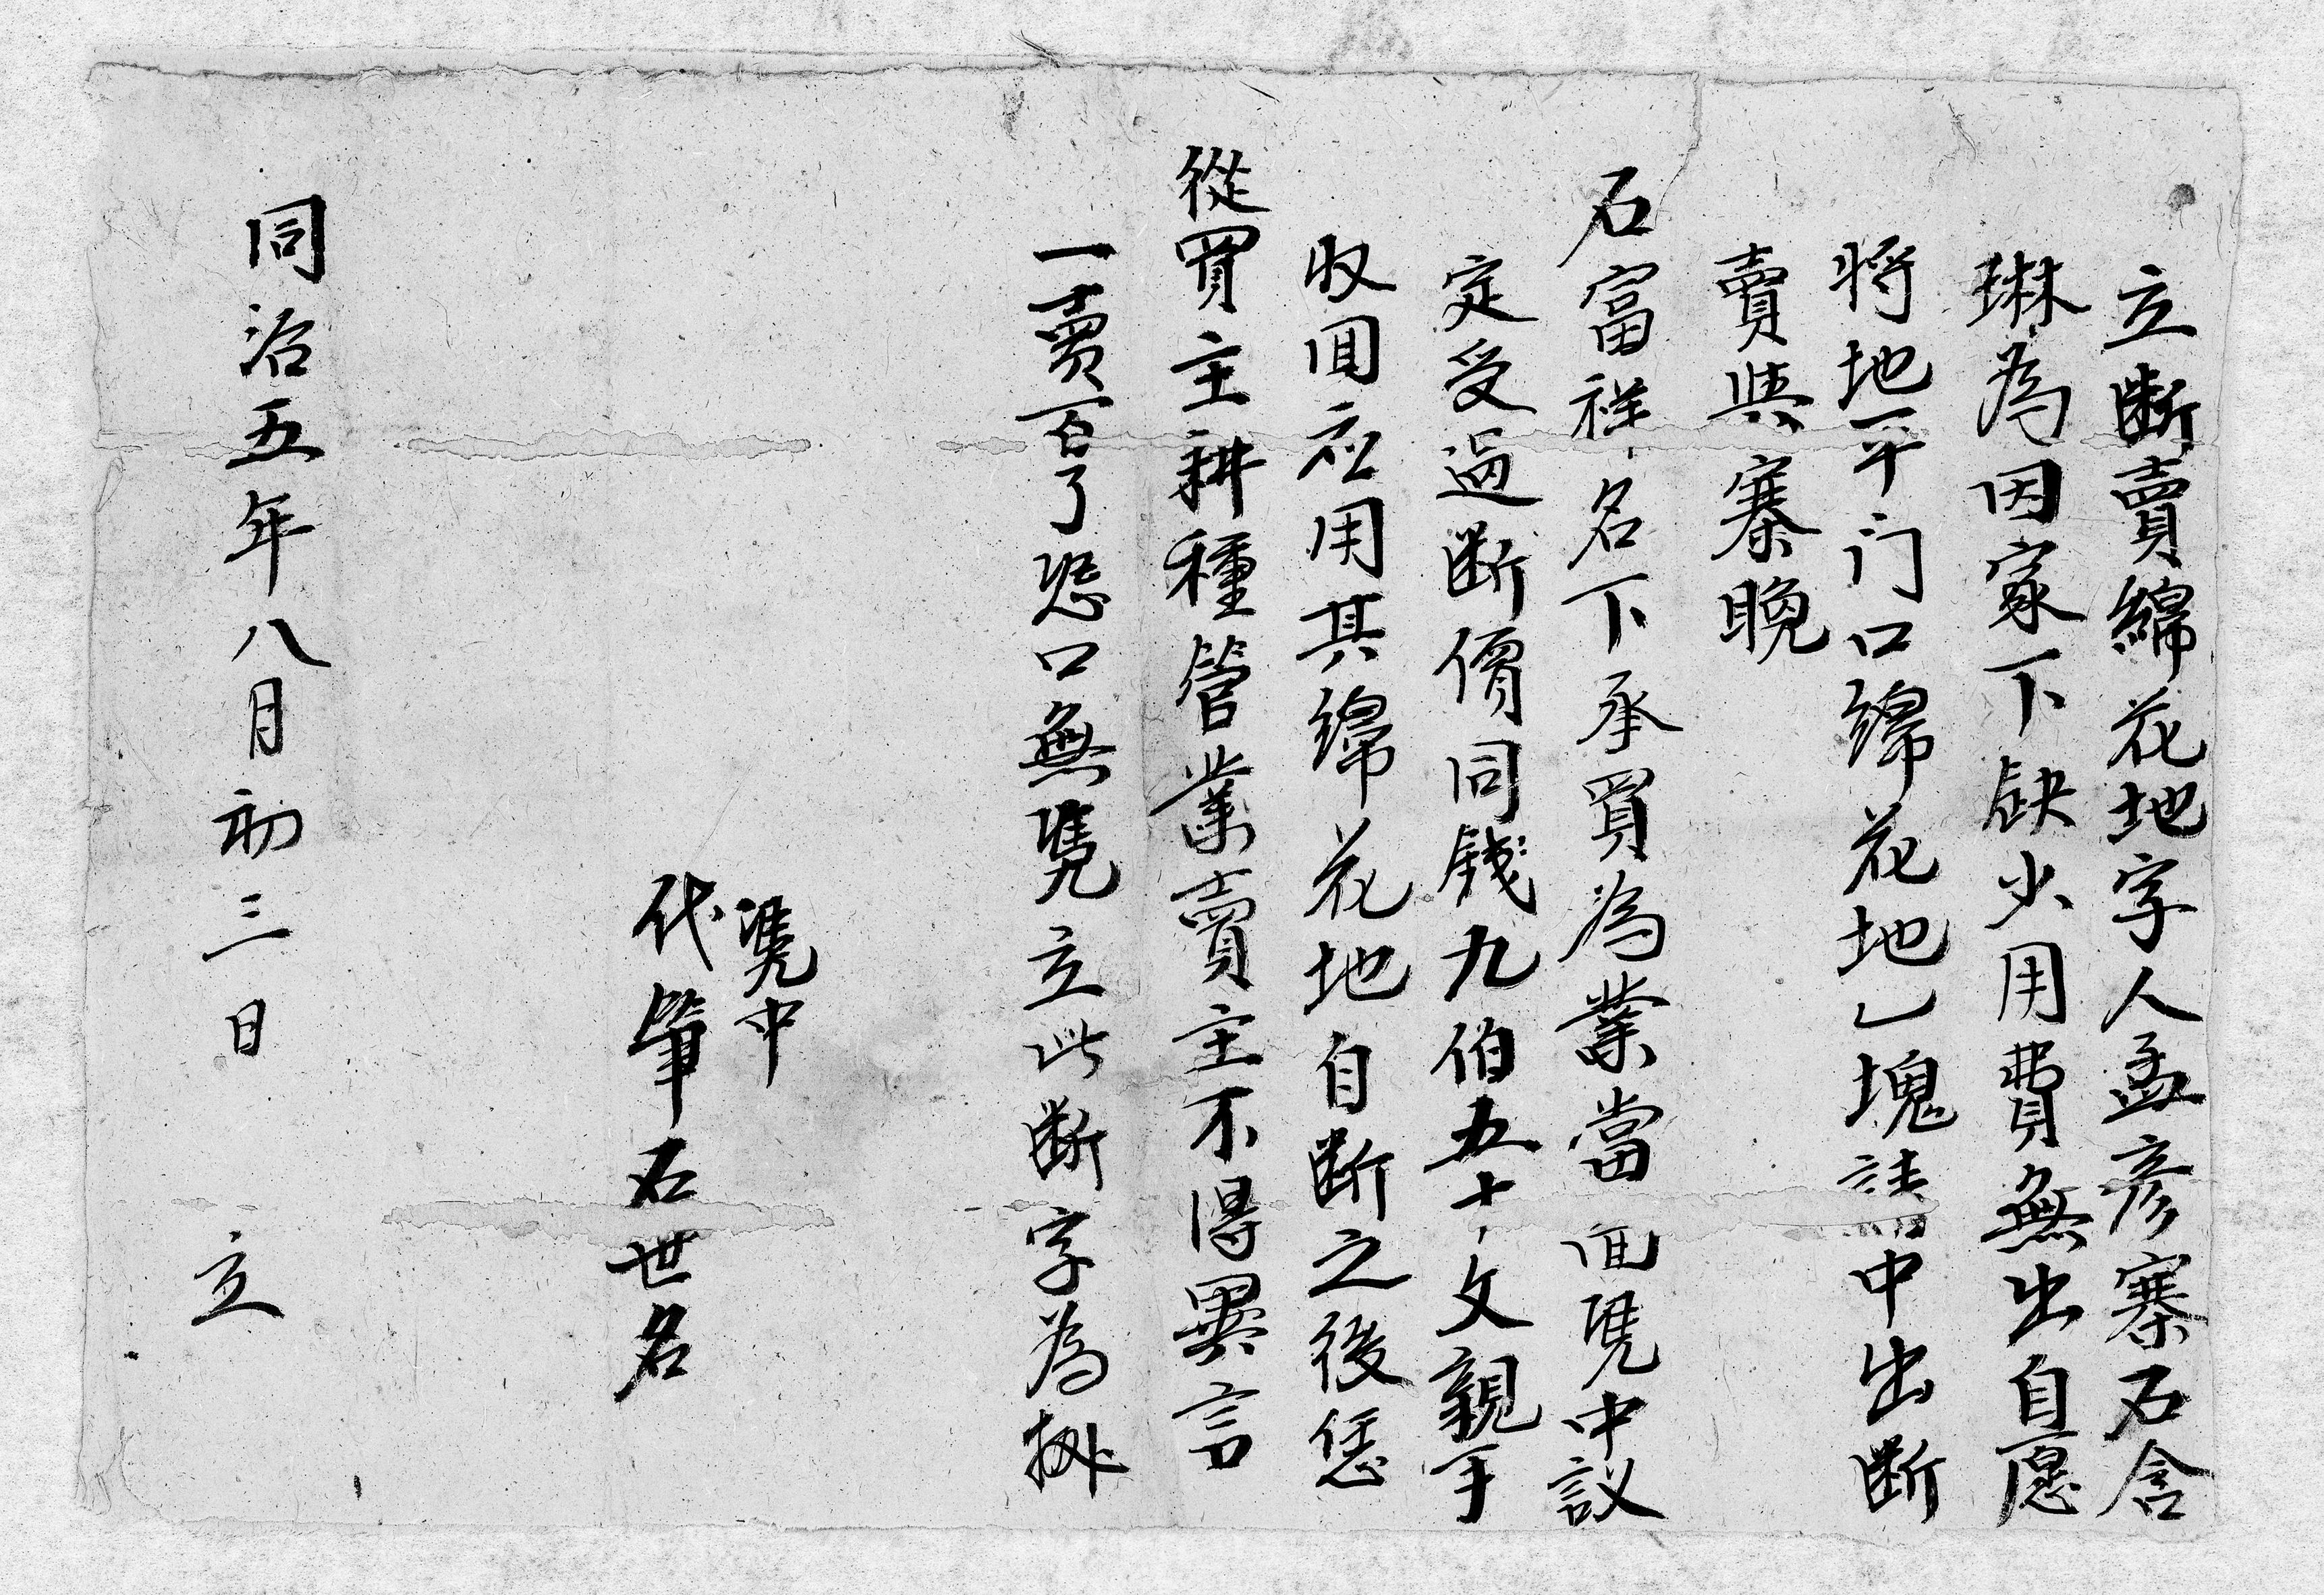 立断賣綿花地字人孟彦寨石含
琳為因家下缺少用費無出自愿
将地平门口綿花地乚塊請中出断
賣與寨晚
石富祥名下承買為業當面凴中議
定受過断價同錢九伯五十文親手
收回应用其綿花地自断之後恁
從買主耕種管業賣主不得異言
一賣百了恐口無凴立此断字為挑
凴中
代筆石世名
同治五年八月初三日 立